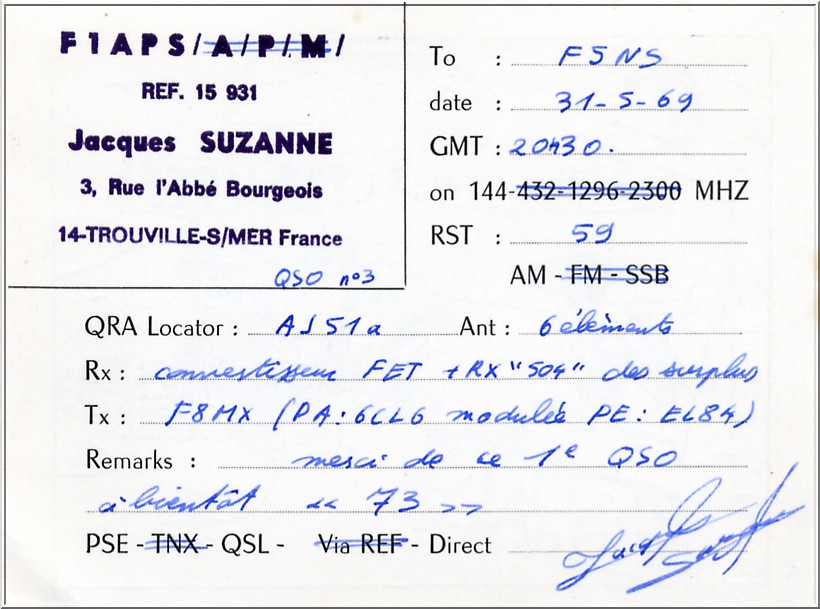 F1APS/A/P/M/
REF. 15 931
Jacques SUZANNE
3, Rue l'Abbé Bourgeois
14-TROUVILLE-S/MER France
QSO n°3
To : F5NS
date : 31-5-69
GMT : 20h30.
on 144-432-1296-2300 MHZ
RST : 59
AM - FM - SSB
QRA Locator : AJ51a Ant : 6 éléments
Rx : convertisseur FET + RX "504" des surplus
Tx : F8MX (PA: 6CL6 modulée PE: EL84)
Remarks : merci de ce 1e QSO
à bientôt << 73 >>
PSE - TNX - QSL - Via REF - Direct